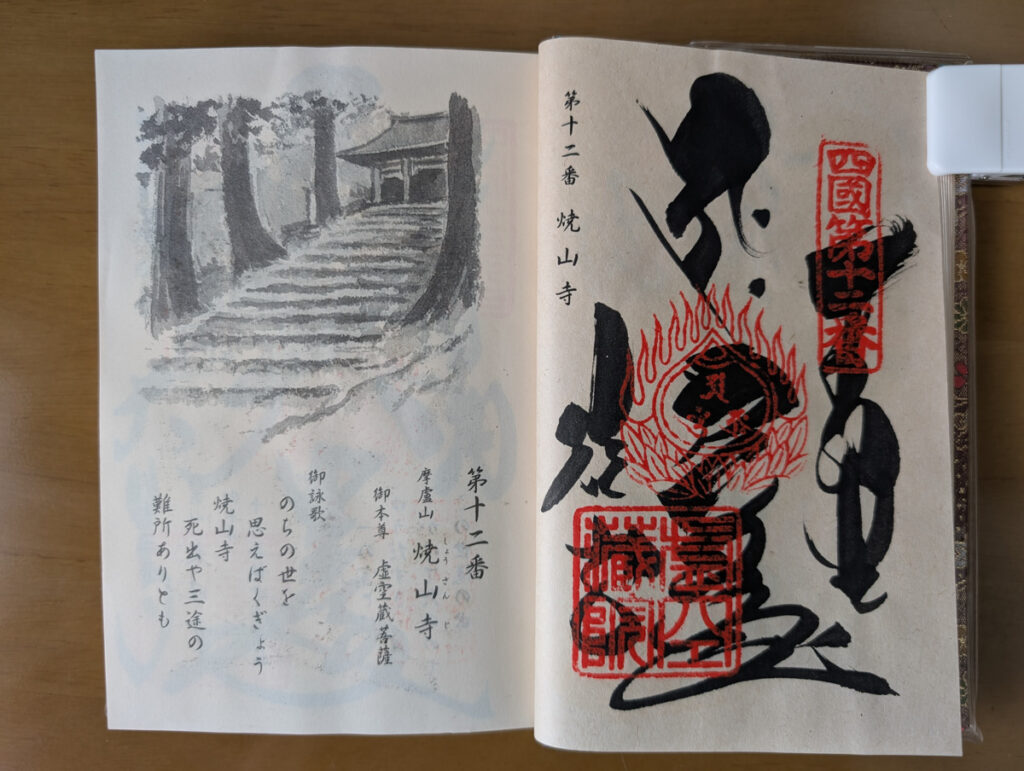 四國第十二番
第十二番 焼山寺
第十二番
摩盧山 焼山寺
しょうさんじ
御本尊 虚空蔵菩薩
御詠歌
のちの世を
思えばくぎょう
焼山寺
死出や三途の
難所ありとも